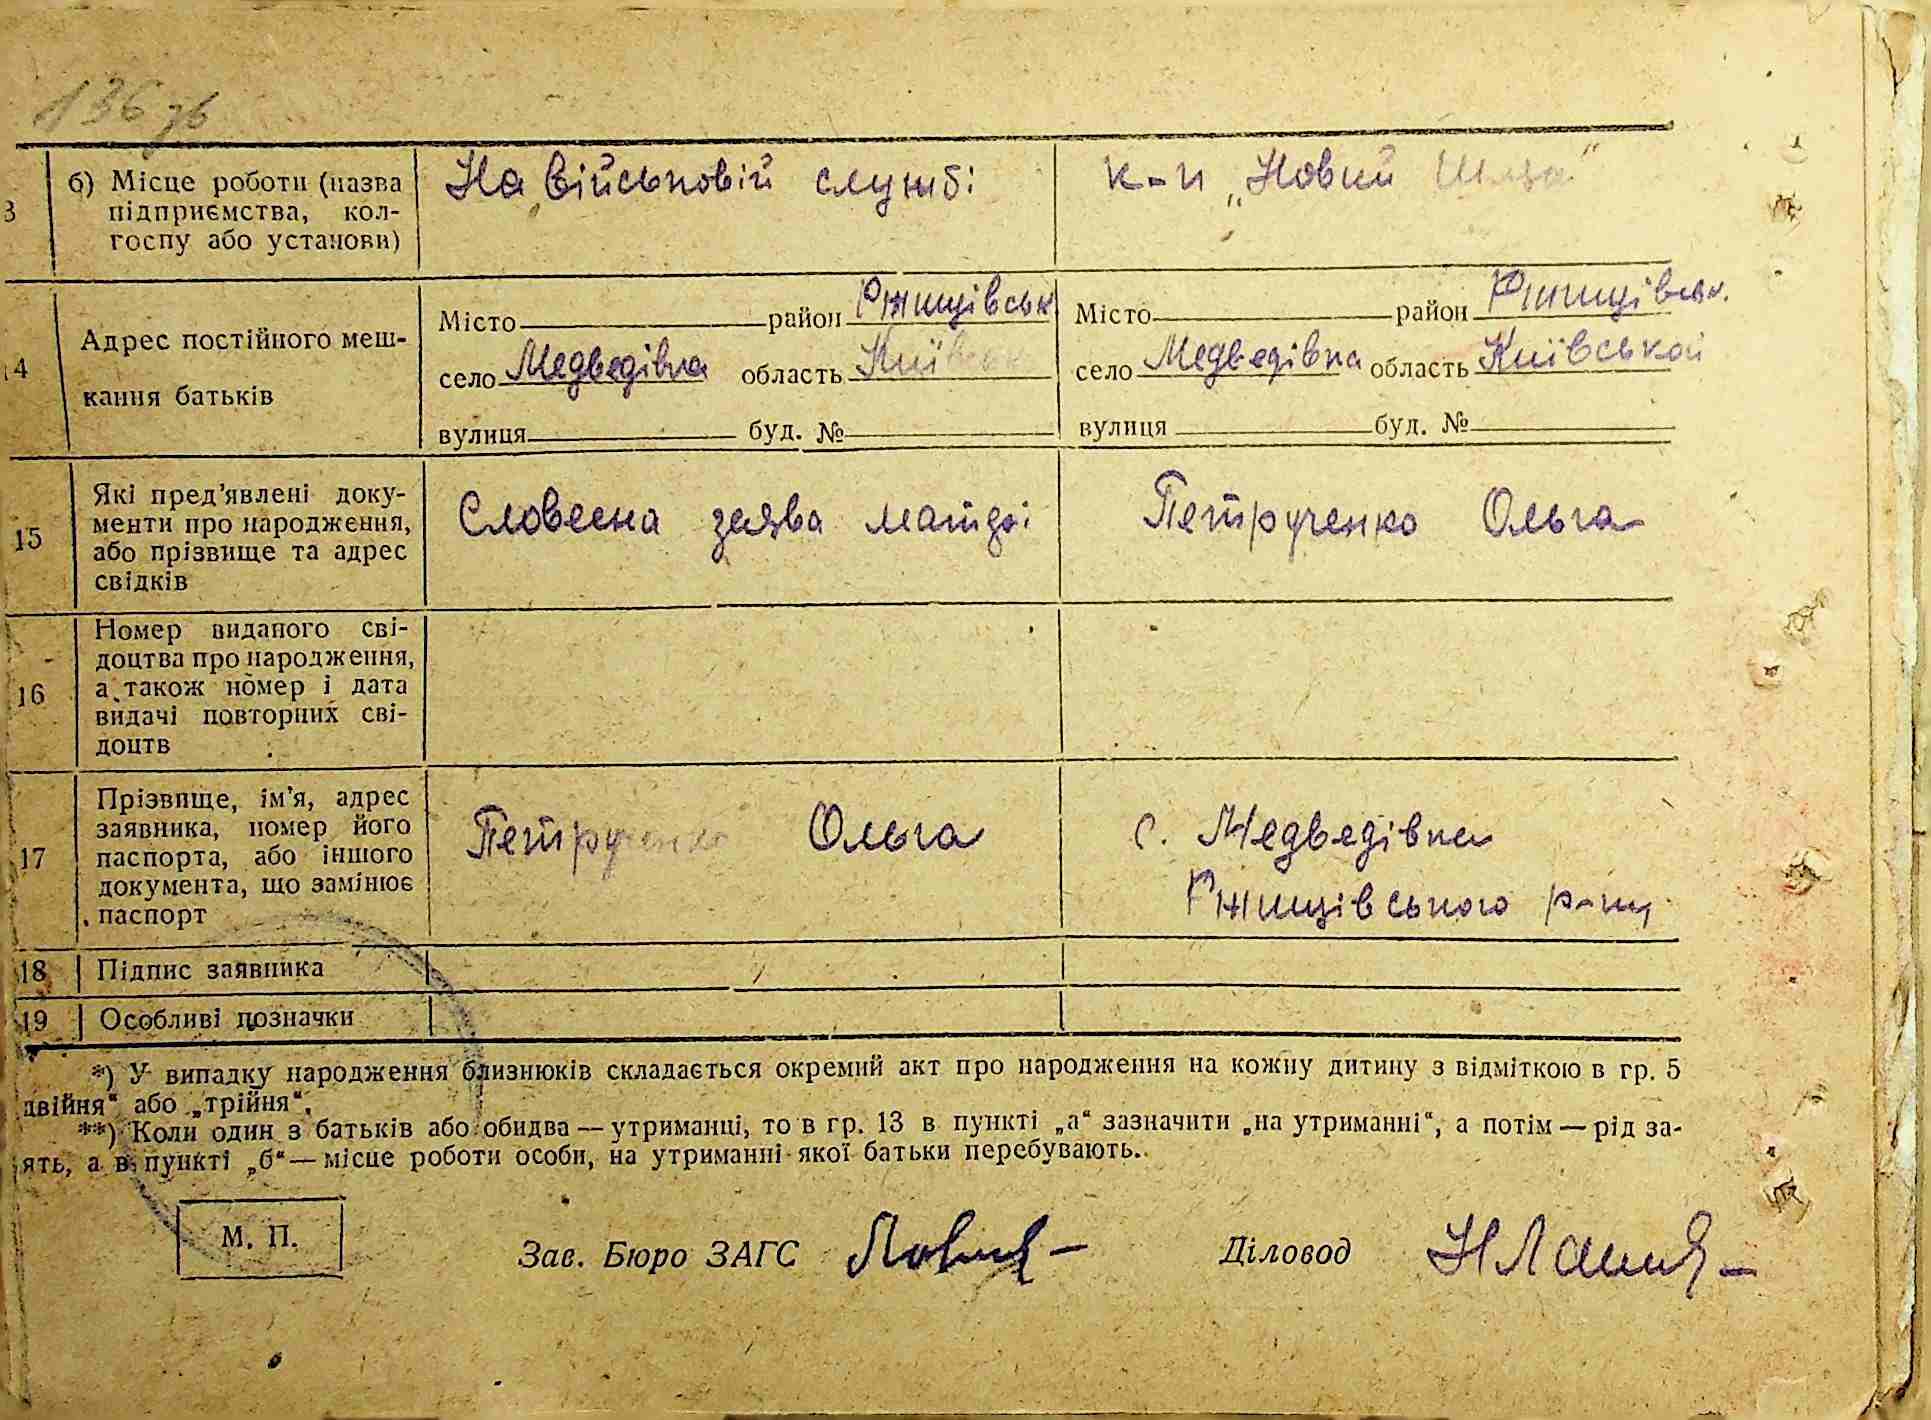 136 зв
б) Місце роботи (назва підприємства, колгоспу або установи)
На військовій службі
к-п „Новий
14 Адрес постійного мешкання батьків
Місто район Ржищівськ
село Медведівка область Київськ
вулиця буд. №
Місто район Ржищівськ.
село Медведівка область Київської
вулиця буд. №
15 Які пред'явлені документи про народження, або прізвище та адрес свідків
Словесна заява матері
Петрученко Ольга
16 Номер виданого свідоцтва про народження, а також номер і дата видачі повторних свідоцтв
17 Прізвище, ім'я, адрес заявника, номер його паспорта, або іншого документа, що замінює паспорт
Петрученко Ольга
с. Медведівка
Ржищівського р-ну
18 Підпис заявника
19 Особливі позначки
*) У випадку народження близнюків складається окремий акт про народження на кожну дитину з відміткою в гр. 5
двійня“ або „трійня“.
**) Коли один з батьків або обидва — утриманці, то в гр. 13 в пункті „а“ зазначити „на утриманні“, а потім — рід за-
ять, а в пункті „б“ — місце роботи особи, на утриманні якої батьки перебувають.
М. П.
Зав. Бюро ЗАГС
Діловод